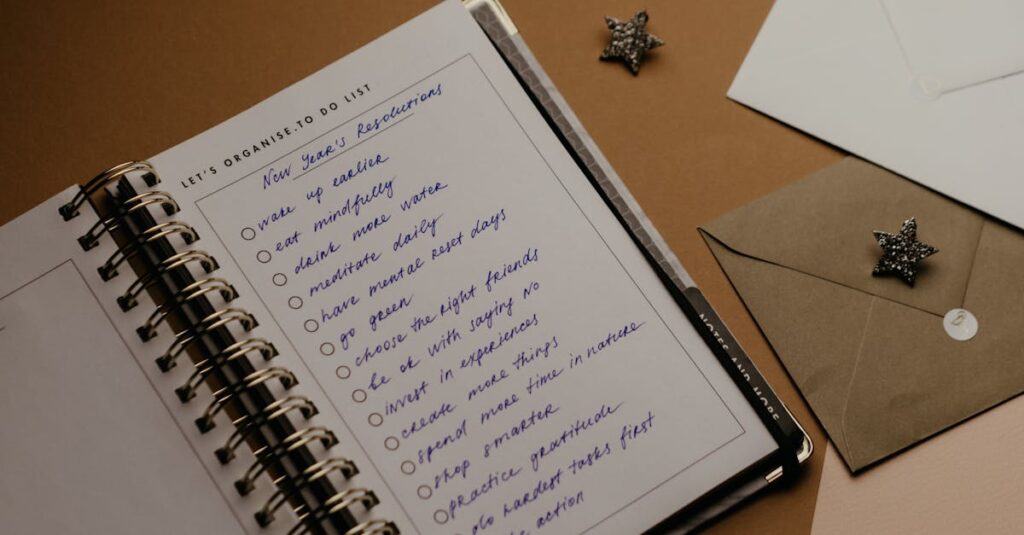 LET'S ORGANISE. TO DO LIST
New Year's Resolutions
wake up earlier
eat mindfully
drink more water
meditate daily
have mental reset days
go green
choose the right friends
be ok with saying no
invest in experiences
create more things
spend more time in nature
shop smarter
practice gratitude
do hardest tasks first
action
NOTES AND MORE